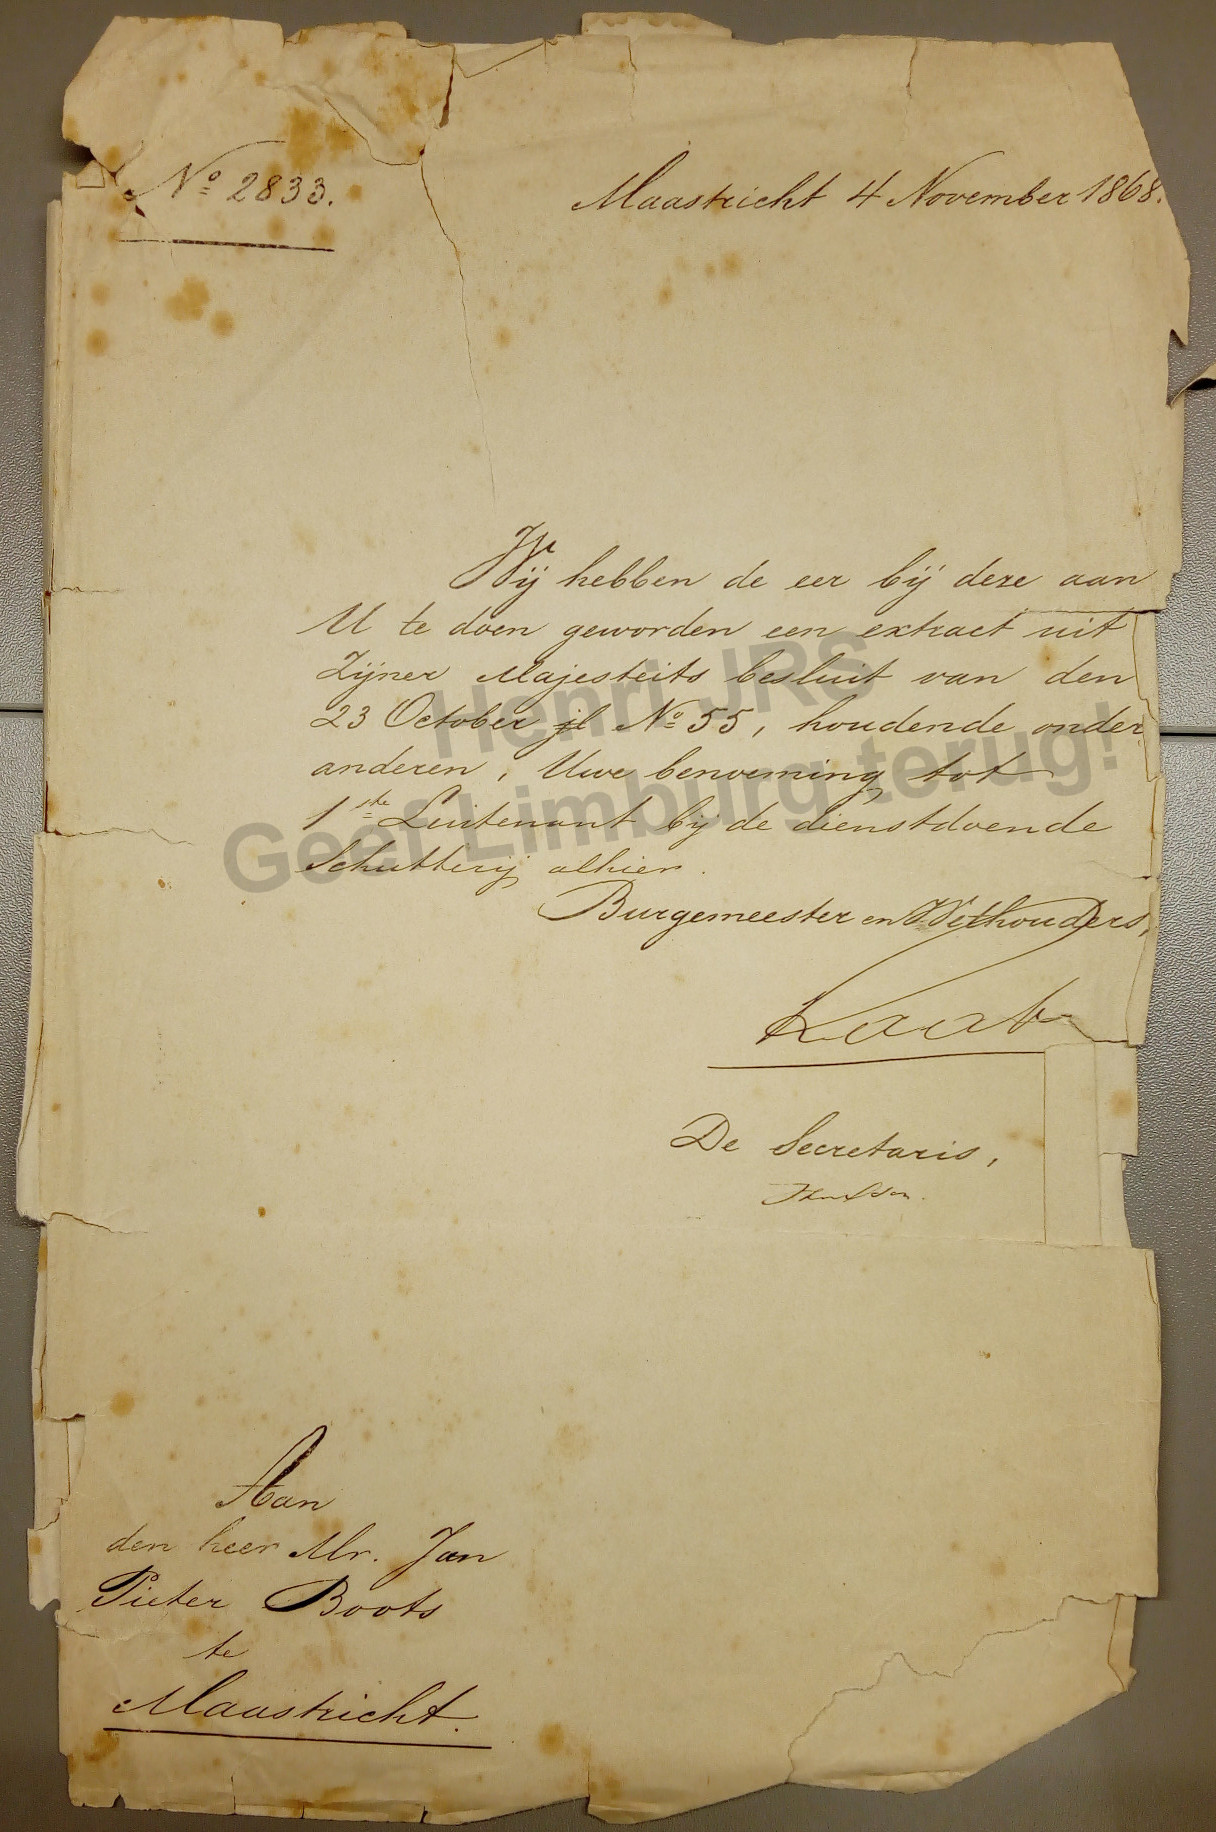 Nº 2833.
Maastricht 4 November 1868.
Wij hebben de eer bij deze aan
U te doen geworden een extract uit
Zijner Majesteits besluit van den
23 October jl Nº 55, houdende onder
anderen, Uwe benoeming tot
1ste Luitenant bij de dienstdoende
Schutterij alhier.
Burgemeester en Wethouders,
De Secretaris,
Aan
den heer Mr. Jan
Pieter Boots
te
Maastricht.
Henri JRS
Geef Limburg terug!